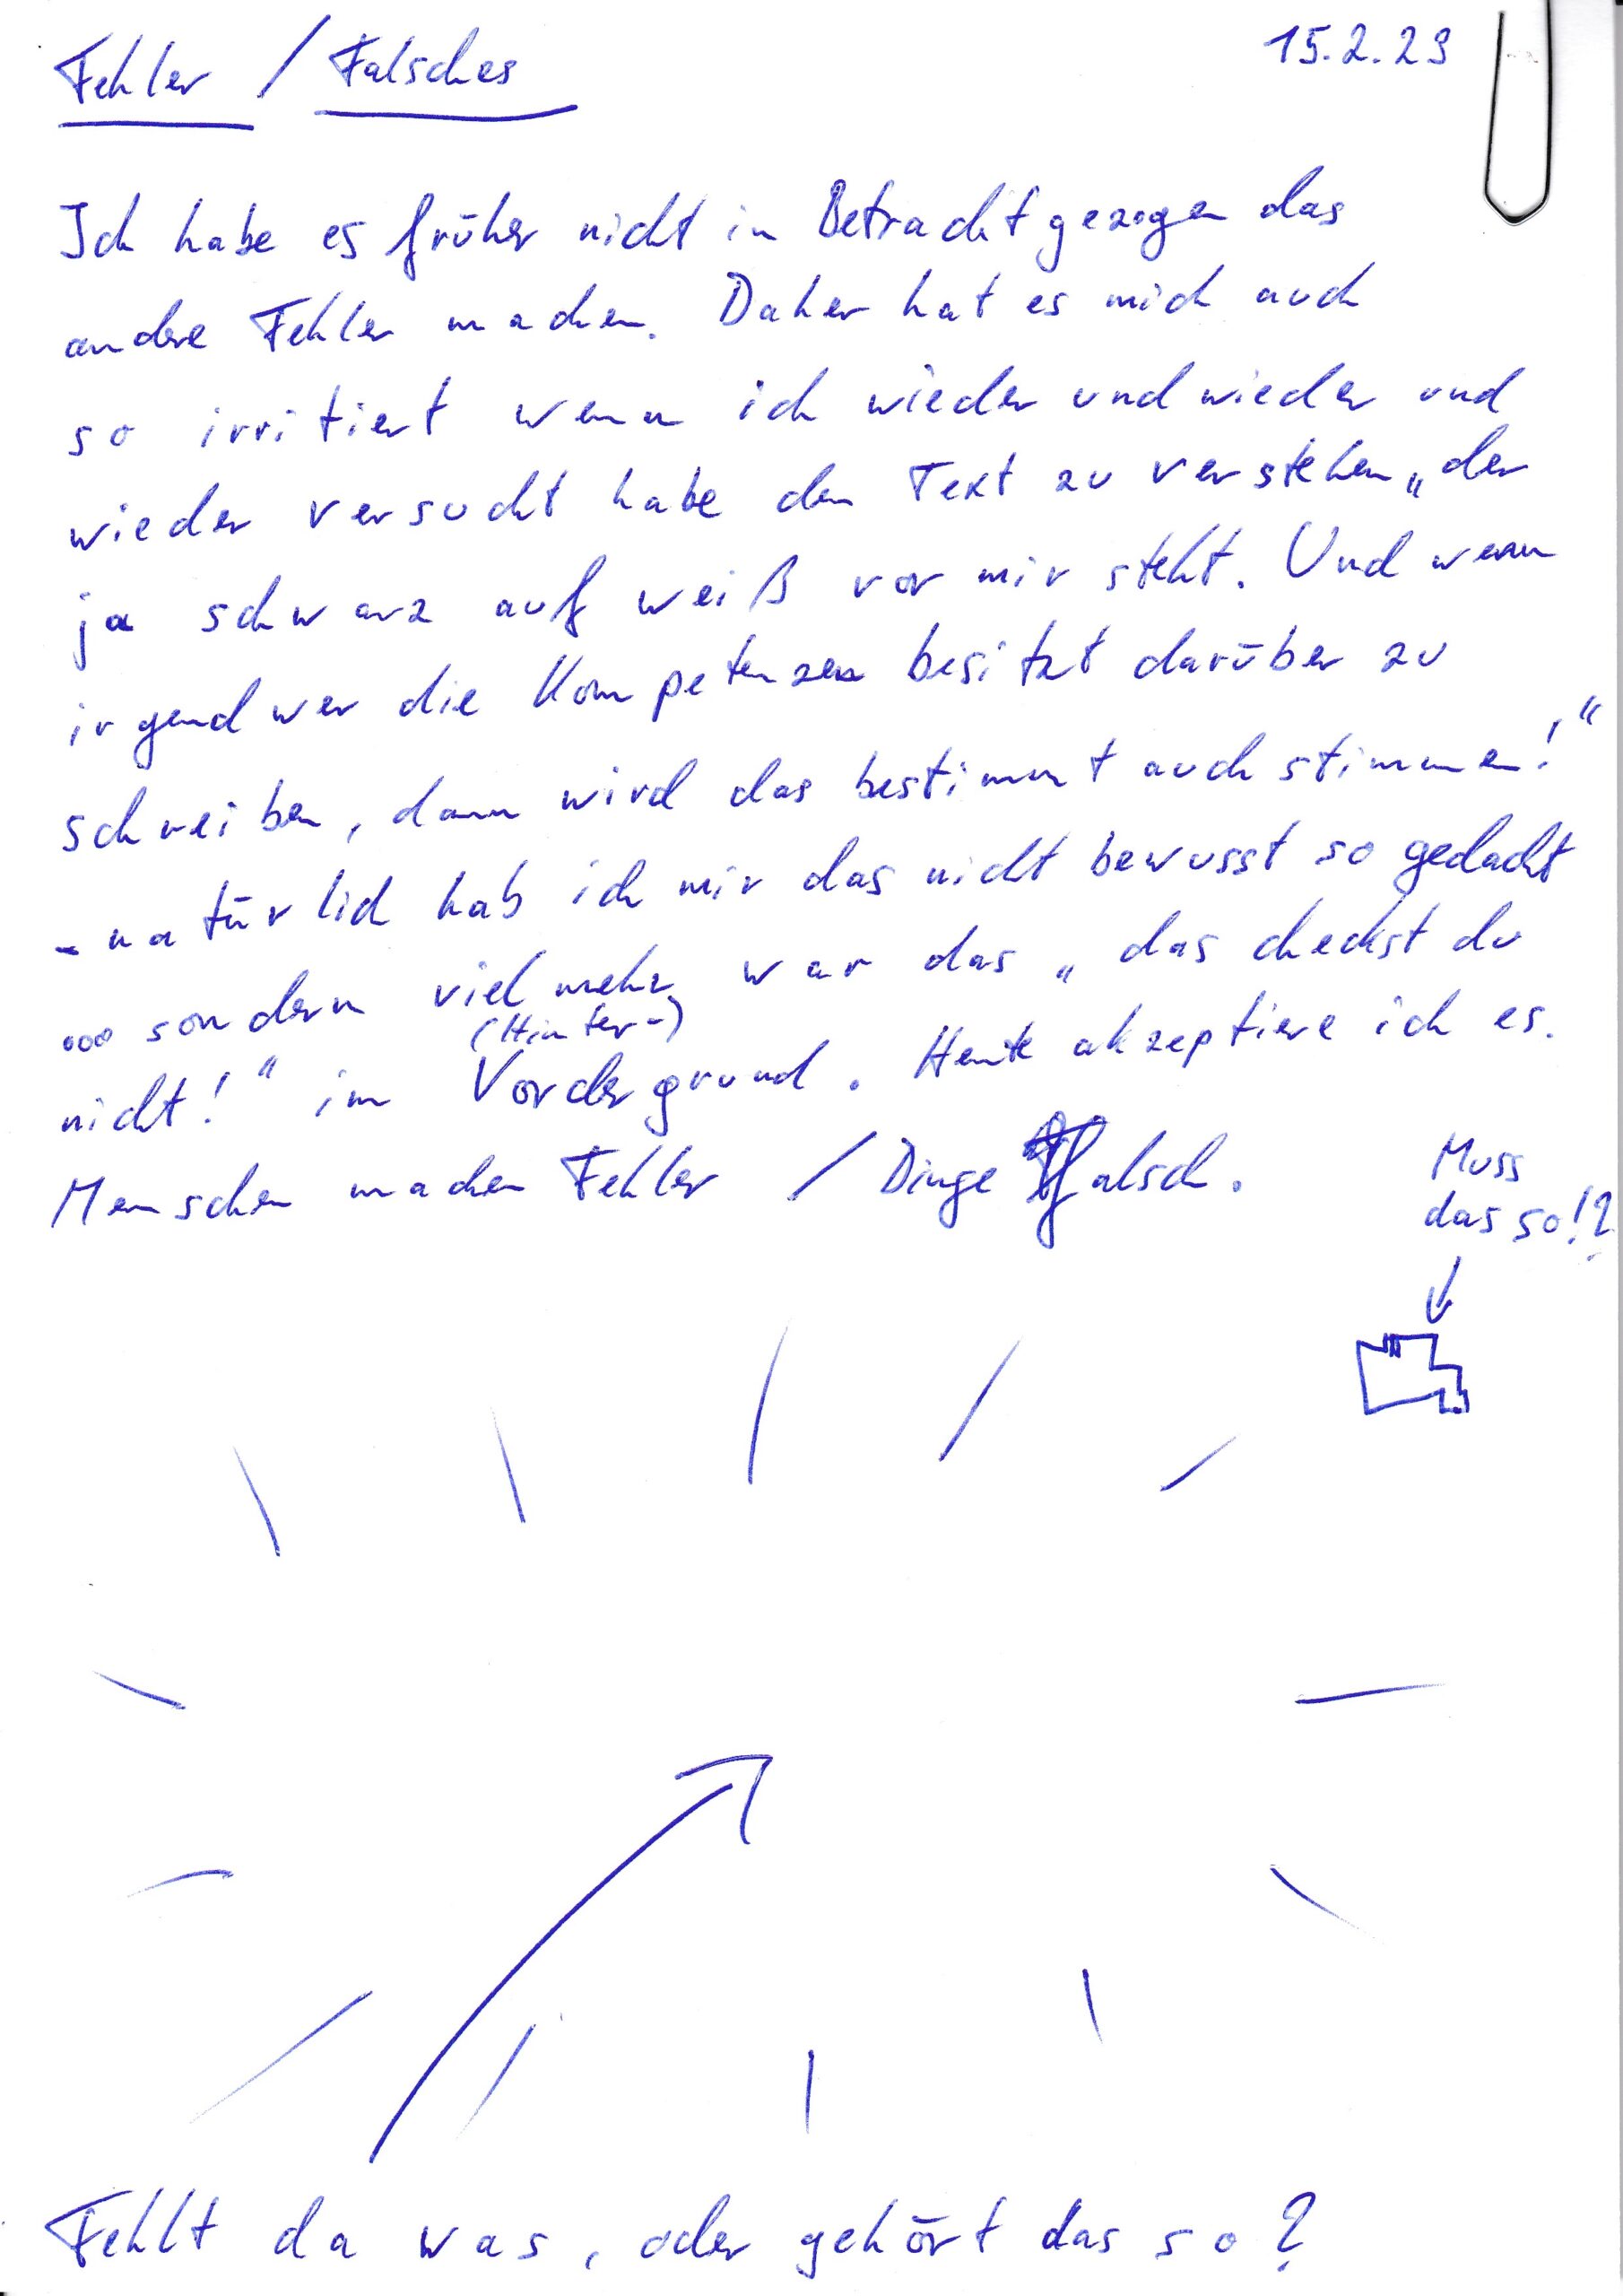 Fehler / Falsches
15.2.23
Ich habe es früher nicht in Betracht gezogen das
andere Fehler machen. Daher hat es mich auch
so irritiert wenn ich wieder und wieder und
wieder versucht habe den Text zu verstehen „der
ja schwarz auf weiß vor mir steht. Und wenn
irgendwer die Kompetenzen besitzt darüber zu
schreiben, dann wird das bestimmt auch stimmen!“
- natürlich hab ich mir das nicht bewusst so gedacht
... sondern viel mehr war das „das checkst du
(Hinter-)
nicht!“ im Vordergrund. Heute akzeptiere ich es.
Menschen machen Fehler / Dinge falsch.
Muss
das so!?
Fehlt da was, oder gehört das so?